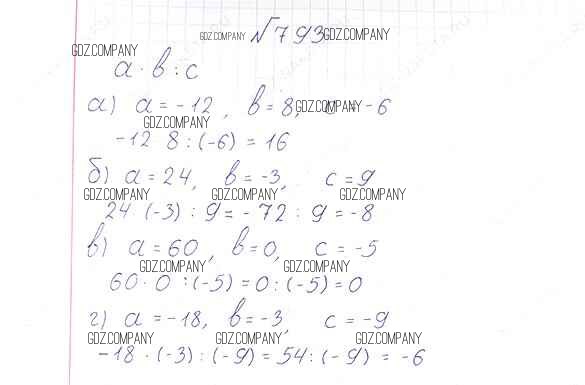 GDZ.COMPANY №793 GDZ.COMPANY
GDZ.COMPANY
a · b : c
а) a = -12, b = 8, GDZ.COMPANY = -6
GDZ.COMPANY
-12 8 : (-6) = 16
б) a = 24, b = -3, c = 9
GDZ.COMPANY GDZ.COMPANY GDZ.COMPANY
24 (-3) : 9 = -72 : 9 = -8
в) a = 60, b = 0, c = -5
GDZ.COMPANY GDZ.COMPANY
60 · 0 : (-5) = 0 : (-5) = 0
г) a = -18, b = -3, c = -9
GDZ.COMPANY GDZ.COMPANY GDZ.COMPANY
-18 · (-3) : (-9) = 54 : (-9) = -6